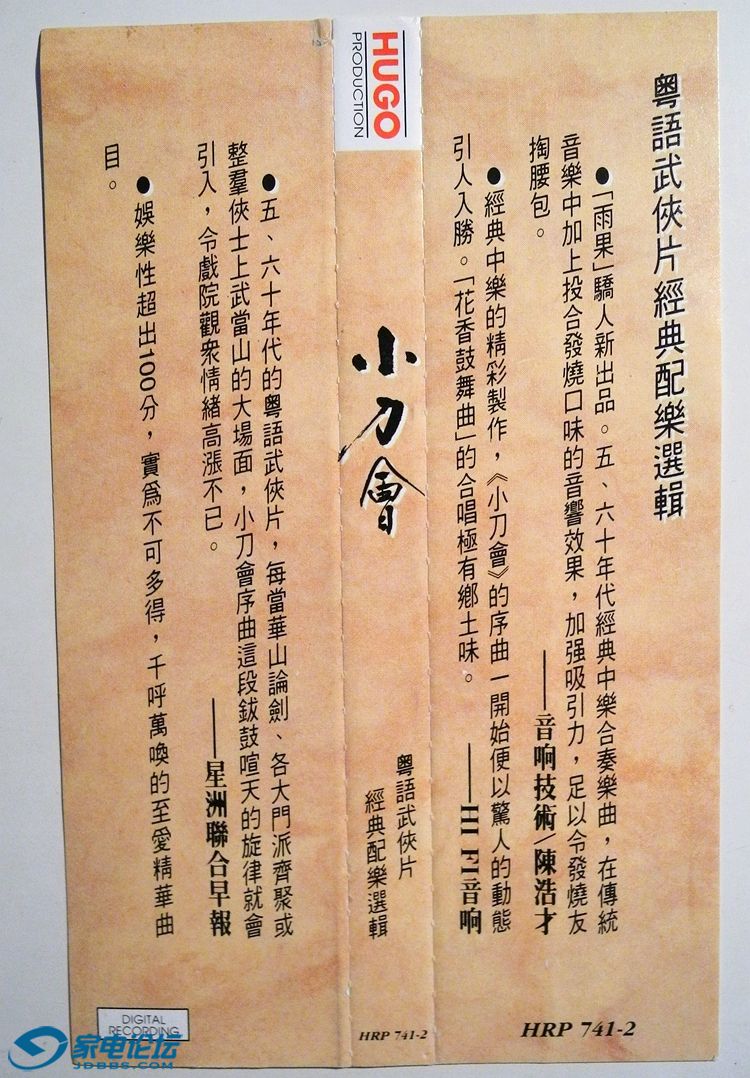 粵語武俠片經典配樂選輯
●「雨果」驕人新出品。五、六十年代經典中樂合奏樂曲，在傳統
音樂中加上投合發燒口味的音響效果，加强吸引力，足以令發燒友
掏腰包。
——音响技術/陳浩才
●經典中樂的精彩製作，《小刀會》的序曲一開始便以驚人的動態
引人入勝。「花香鼓舞曲」的合唱極有鄉土味。
——HI FI音响
HRP 741-2
HUGO
PRODUCTION
小刀會
粵語武俠片
經典配樂選輯
HRP 741-2
●五、六十年代的粵語武俠片，每當華山論劍、各大門派齊聚或
整羣俠士上武當山的大場面，小刀會序曲這段鈸鼓喧天的旋律就會
引入，令戲院觀衆情緒高漲不已。
——星洲聯合早報
●娛樂性超出100分，實爲不可多得，千呼萬喚的至愛精華曲
目。
DIGITAL
RECORDING
家电论坛
JDBBS.COM